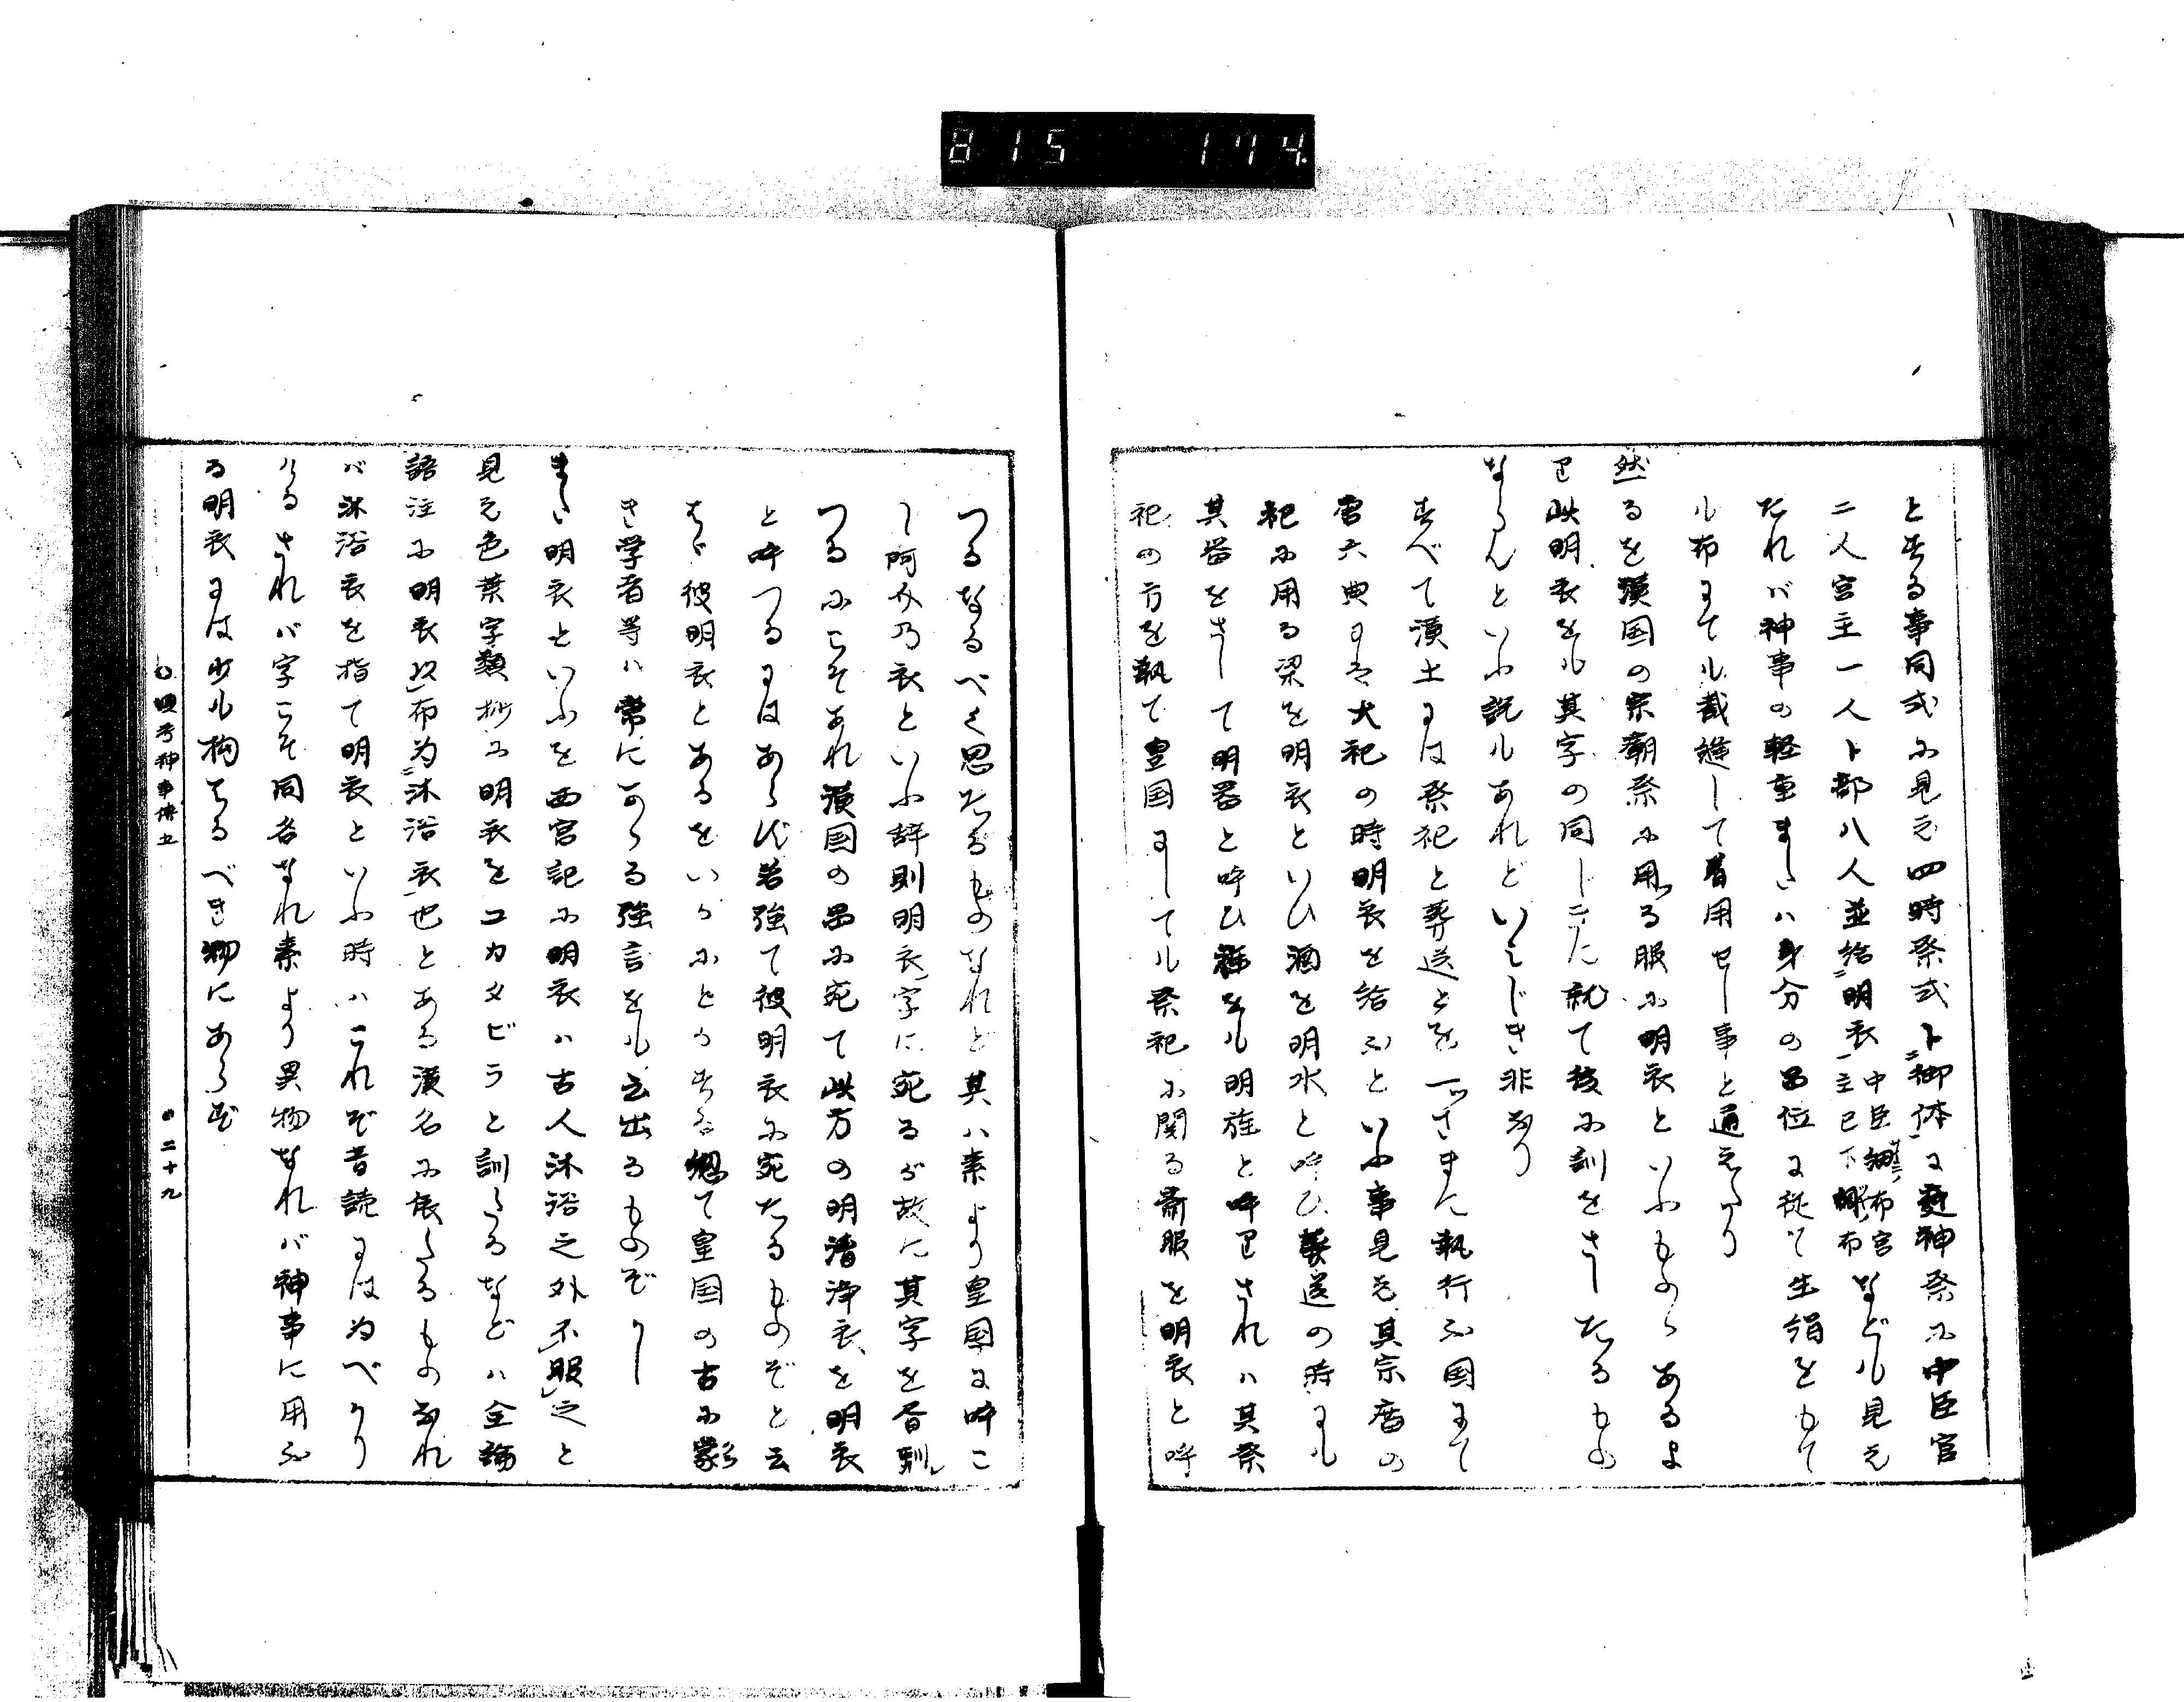 815 174
とある事同式に見え四時祭式卜御体に奠神祭に中臣官
二人宮主一人卜部八人並給明衣中臣細布宮主已下調布などル見え
たれバ神事の軽重またハ身分の品位に従て生絹をもて
ル布にてル裁縫して着用せし事と通えたり
然るを漢国の宗廟祭に用る服に明衣といふものゝあるよ
り此明衣をル其字の同じきに就て後に訓をさしたるもの
ならんといふ説ルあれどいみじき非なり
すべて漢土には祭祀と葬送とを一つさまに執行ふ国にて
唐六典にも大祀の時明衣を給ふといふ事見え其宗廟の
祀に用る梁を明衣といひ酒を明水と呼ひ葬送の時にル
其器をさして明器と呼ひ旌をル明旌と呼りされハ其祭
祀の方を執て皇国にしてル祭祀に関る斎服を明衣と呼
つるなるべく思たるものなれど其ハ素より皇国に呼こ
し阿加乃衣といふ辞則明衣字に宛るが故に其字を昔馴
つるにこそあれ漢国の品に宛て此方の明清浄衣を明衣
と呼つるにはあらず若強て彼明衣に宛たるものぞと云
はゞ彼明衣とあるをいかにとかする総て皇国の古に蒙
き学者等ハ常にかゝる強言をル云出るものぞかし
また明衣といふを西宮記に明衣ハ古人沐浴之外不服之と
見え色葉字類抄に明衣をユカタビラと訓たるなどハ全論
語注に明衣以布為沐浴衣也とある漢名に依たるものなれ
バ沐浴衣を指て明衣といふ時ハこれぞ音読にはすべかり
けるされバ字こそ同名なれ素より異物なれバ神事に用ふ
る明衣には少ル拘はるべき物にあらず
二十九